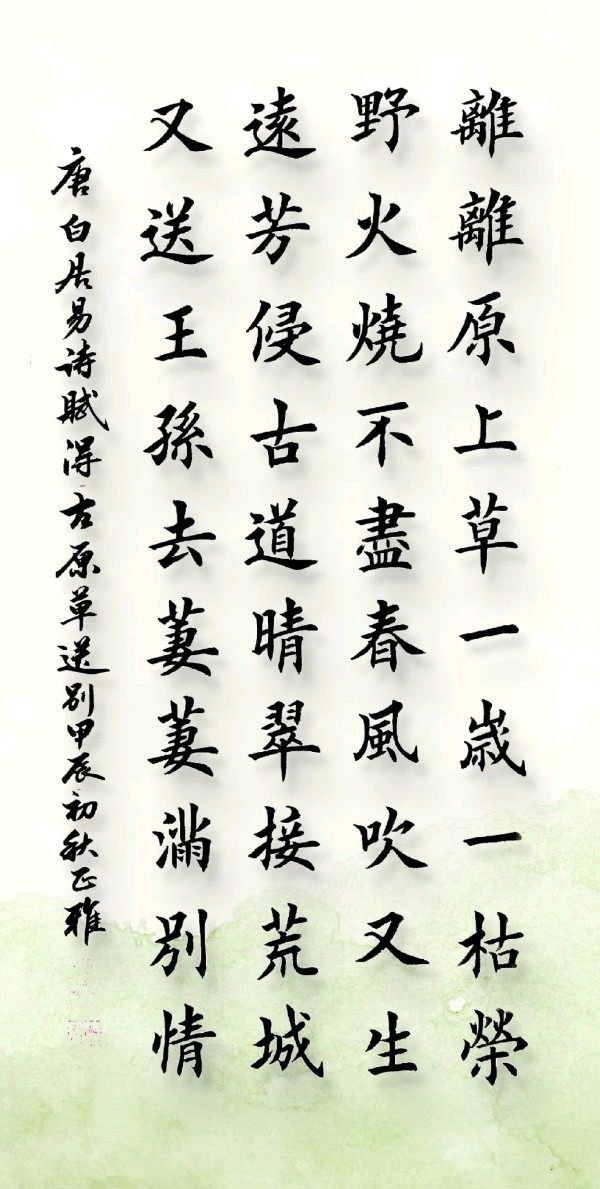 離離原上草一歲一枯榮
野火燒不盡春風吹又生
遠芳侵古道晴翠接荒城
又送王孫去萋萋滿別情
唐白居易诗賦得古原草送别甲辰初秋正雅